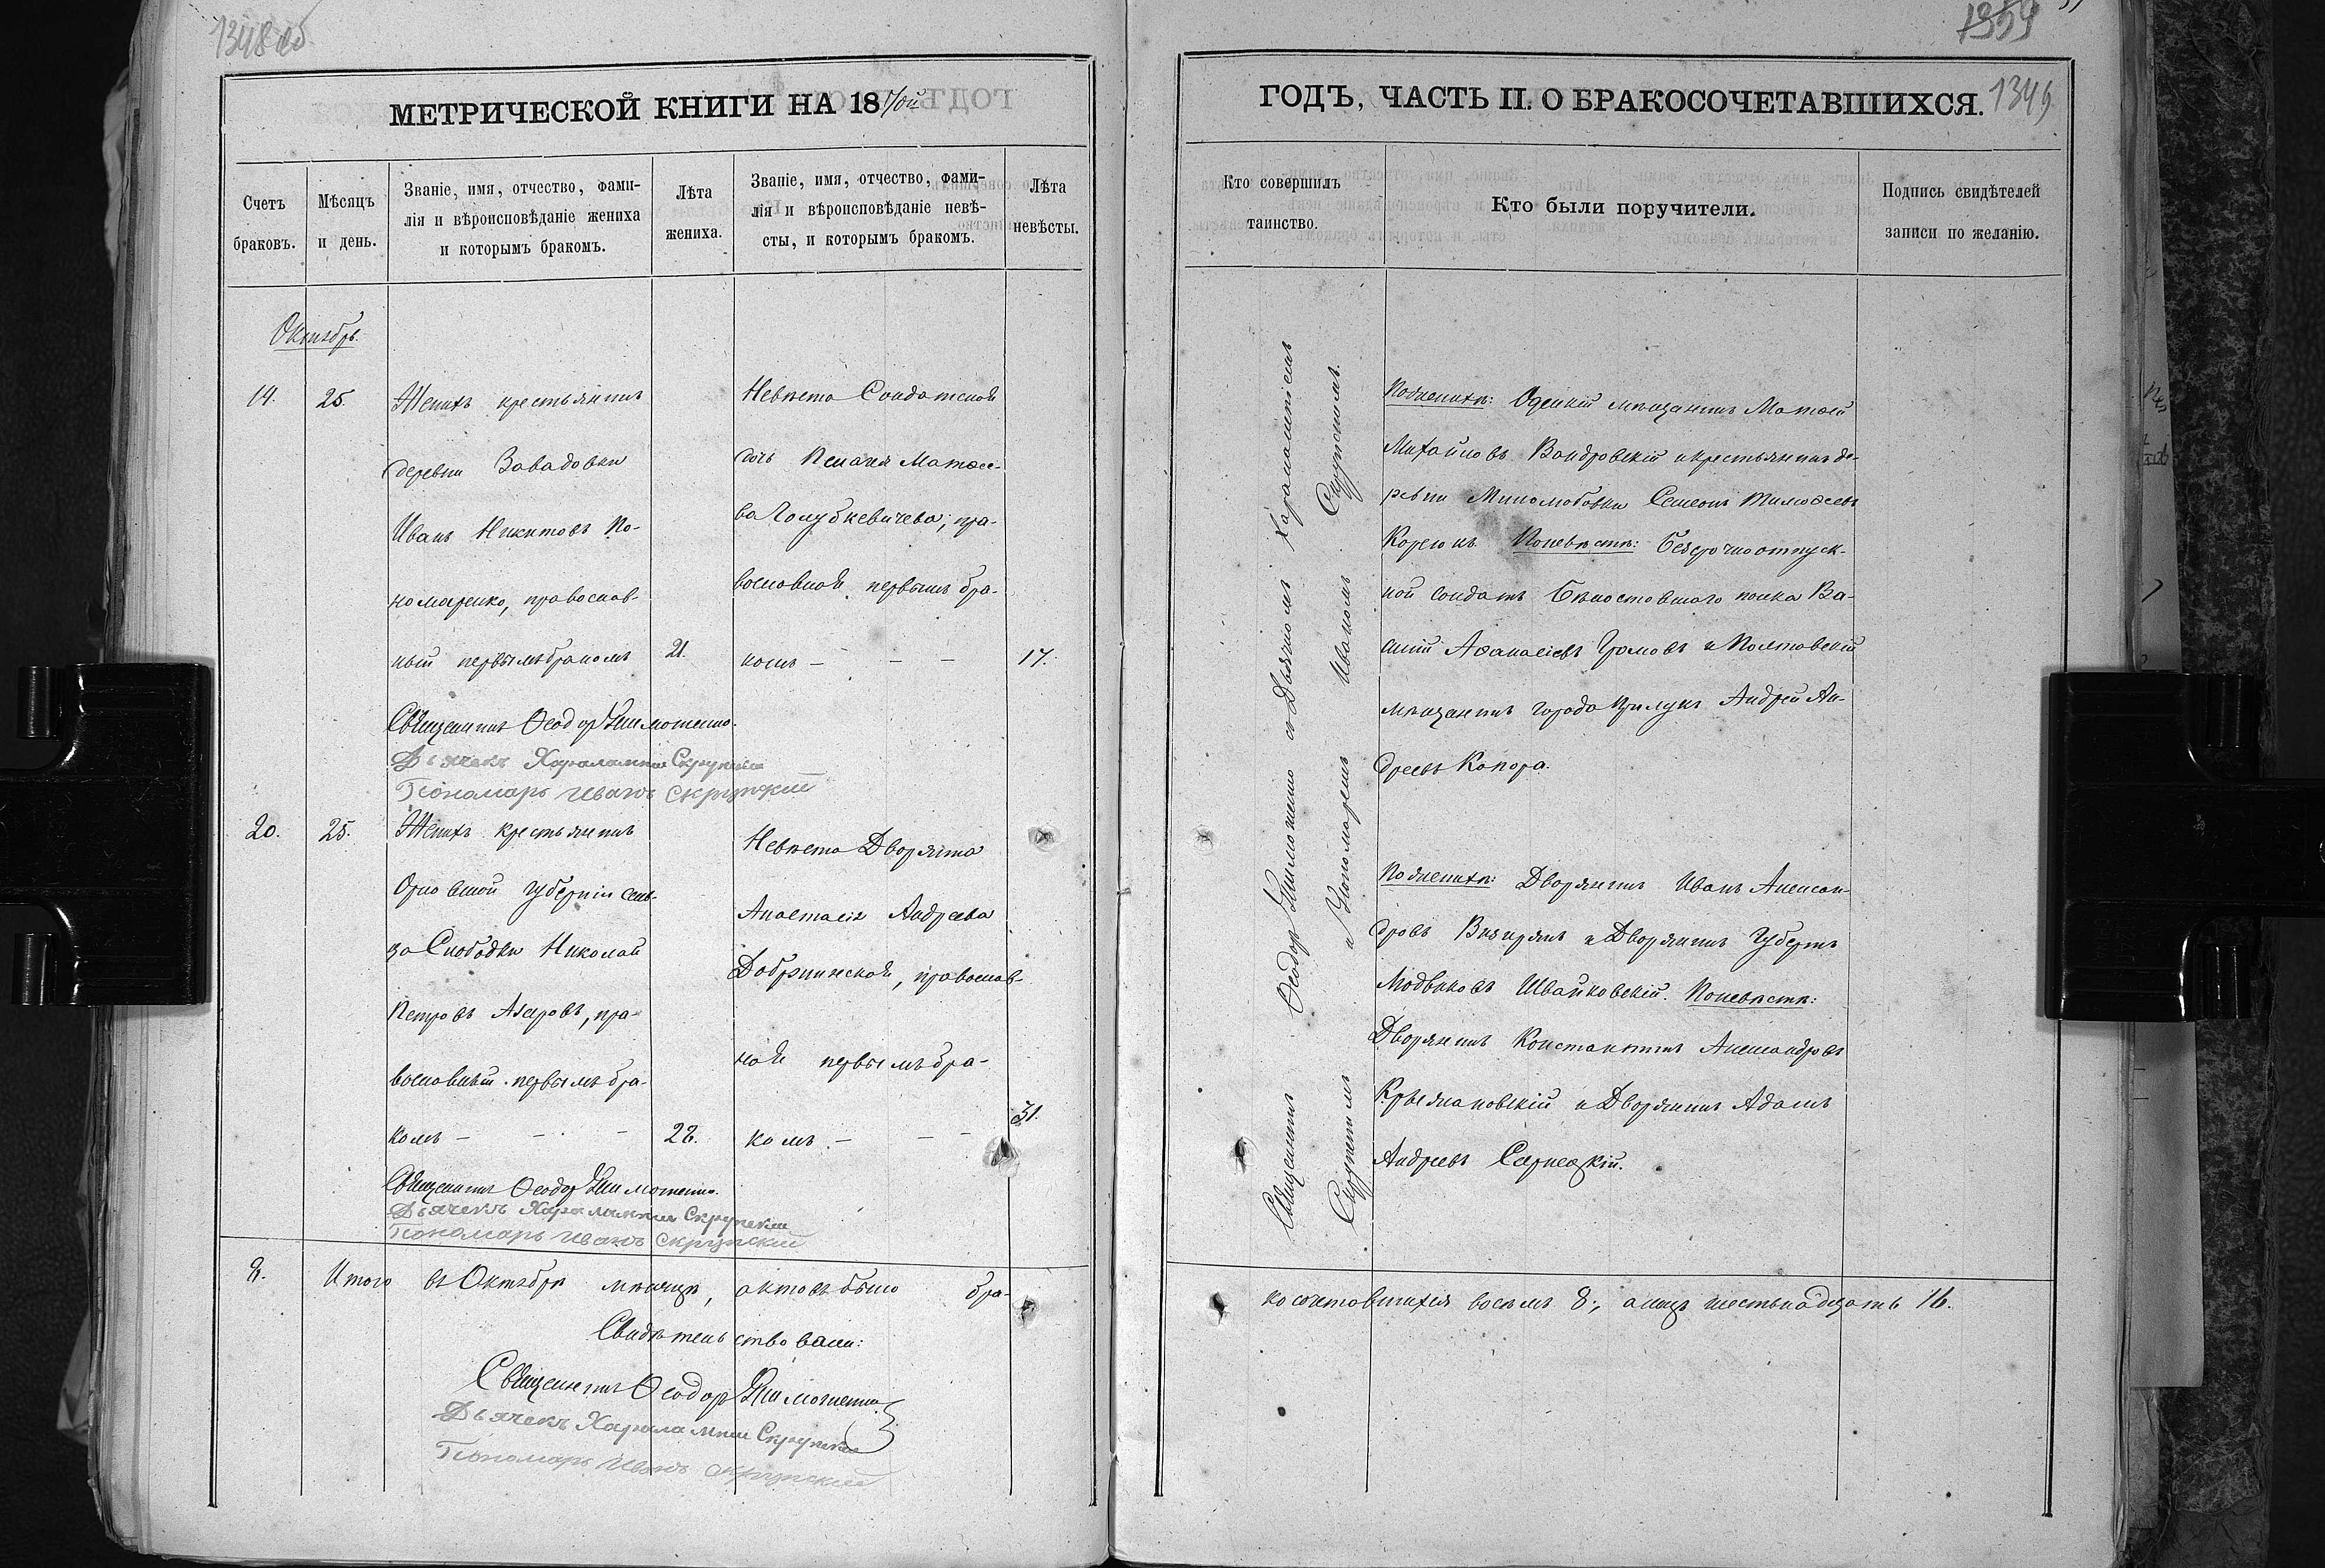 1348 об
МЕТРИЧЕСКОЙ КНИГИ НА 18
Счетъ браковъ.
Мѣсяцъ и день.
Званіе, имя, отчество, фами-
лія и вѣроисповѣданіе жениха
и которымъ бракомъ.
Лѣта жениха.
Званіе, имя, отчество, фами-
лія и вѣроисповѣданіе невѣ-
сты, и которымъ бракомъ.
Лѣта невѣсты.
Октябрь.
25.
Женихъ крестьянинъ
деревни Завадовки
Иванъ Никитовъ По-
номаренко, православ-
ный первымъ бракомъ
21.
Невѣста Солдатская
дочь Пелагея Матѳее-
ва Голубкевичева, пра-
вославная первымъ бра-
комъ - - -
17.
Священникъ Ѳеодоръ
Дьячекъ Харалампій Скрупскій
Пономарь Иванъ Скрупскій
20.
25.
Женихъ крестьянинъ
Орловской губерніи сель-
ца Слободки Николай
Петровъ Азаровъ, пра-
вославный первымъ бра-
комъ - - -
22.
Невѣста Дворянка
Анастасія Андреева
православ-
ная первымъ бра-
комъ - - -
31.
Священникъ Ѳеодоръ
Дьячекъ Харалампій Скрупскій
Пономарь Иванъ Скрупскій
8.
Итого въ Октябрѣ мѣсяцѣ, актовъ было бра-
Свидѣтельствовали:
Священникъ Ѳеодоръ
Дьячекъ Харалампій Скрупскій
Пономарь Иванъ Скрупскій
1359
1349
ГОДЪ, ЧАСТЬ II. О БРАКОСОЧЕТАВШИХСЯ.
Кто совершилъ
таинство.
Кто были поручители.
Подпись свидѣтелей
записи по желанію.
Священникъ Ѳеодоръ съ Дьячкомъ Харалампіемъ
Скрупскимъ и Пономаремъ Иваномъ Скрупскимъ.
По женихѣ: Одескій мѣщанинъ Матѳей
Михайловъ Вондровскій и крестьянинъ де-
ревни Семеонъ Тимоѳеевъ
По невѣстѣ: безсрочноотпуск-
ной солдатъ Бѣлостокскаго полка Ва-
силій Аѳанасіевъ Громовъ и Полтавскій
мѣщанинъ города Прилукъ Андрей Ан-
дреевъ Капора.
По женихѣ: Дворянинъ Иванъ Алексан-
дровъ и Дворянинъ Губертъ
Людвиковъ Швайковскій. По невѣстѣ:
Дворянинъ Константинъ Александровъ
Кржижановскій и Дворянинъ Адамъ
Андреевъ Сарнецкій.
косочетавшихся восемь 8., а лицъ шестьнадцать 16.